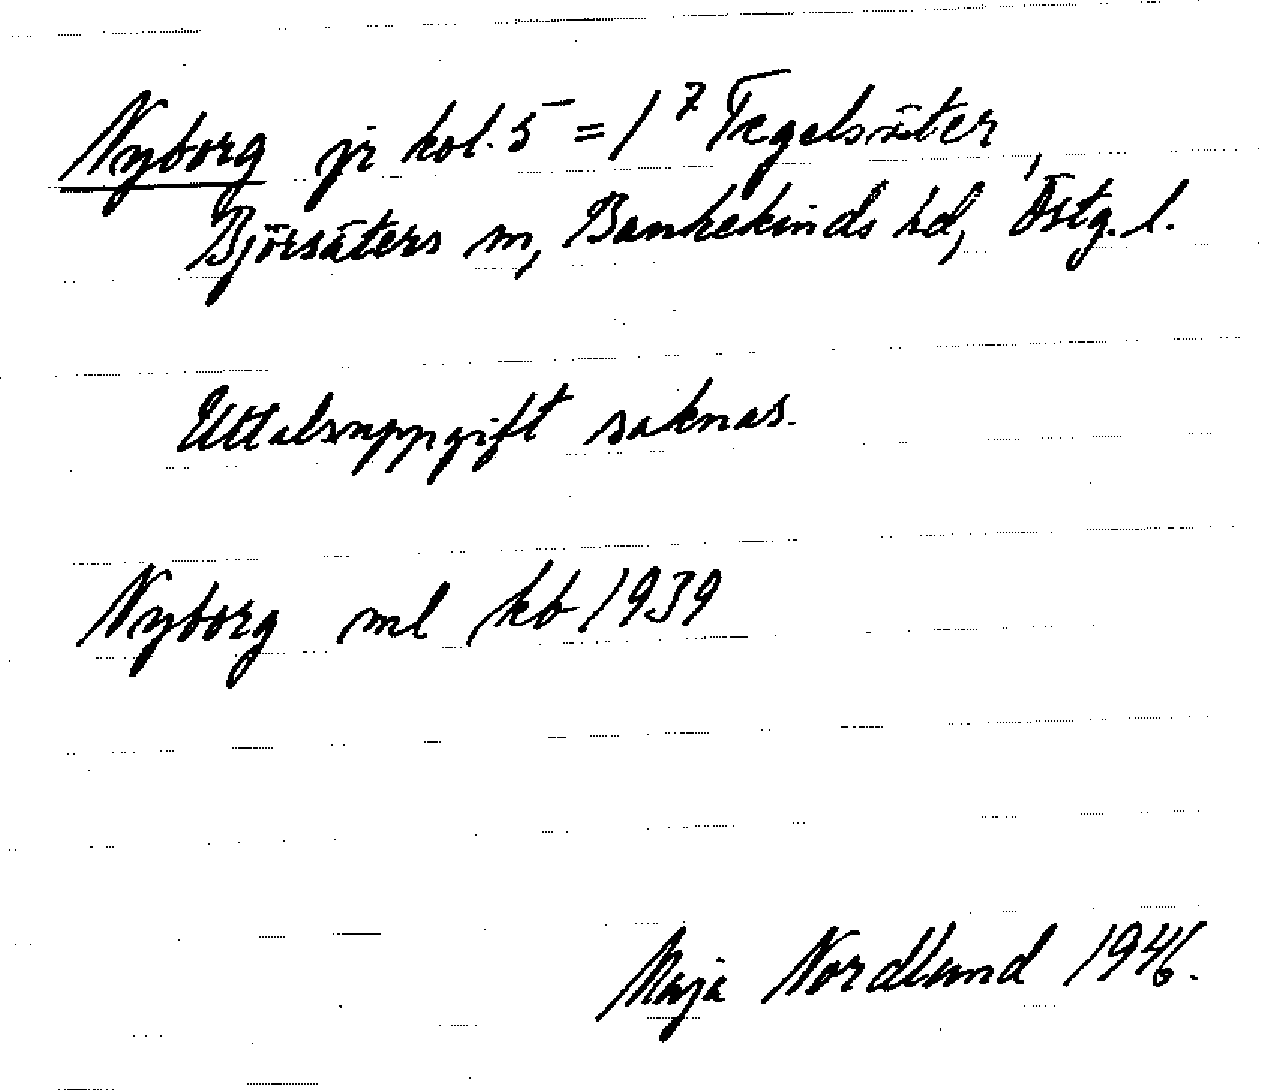 Nyborg jr kol. 5 = 1⁷ Tegelsäter,
Björsäters sn, Bankekinds hd, Östg. l.
Uttalsuppgift saknas.
Nyborg ml kb 1939
Maja Nordlund 1946.